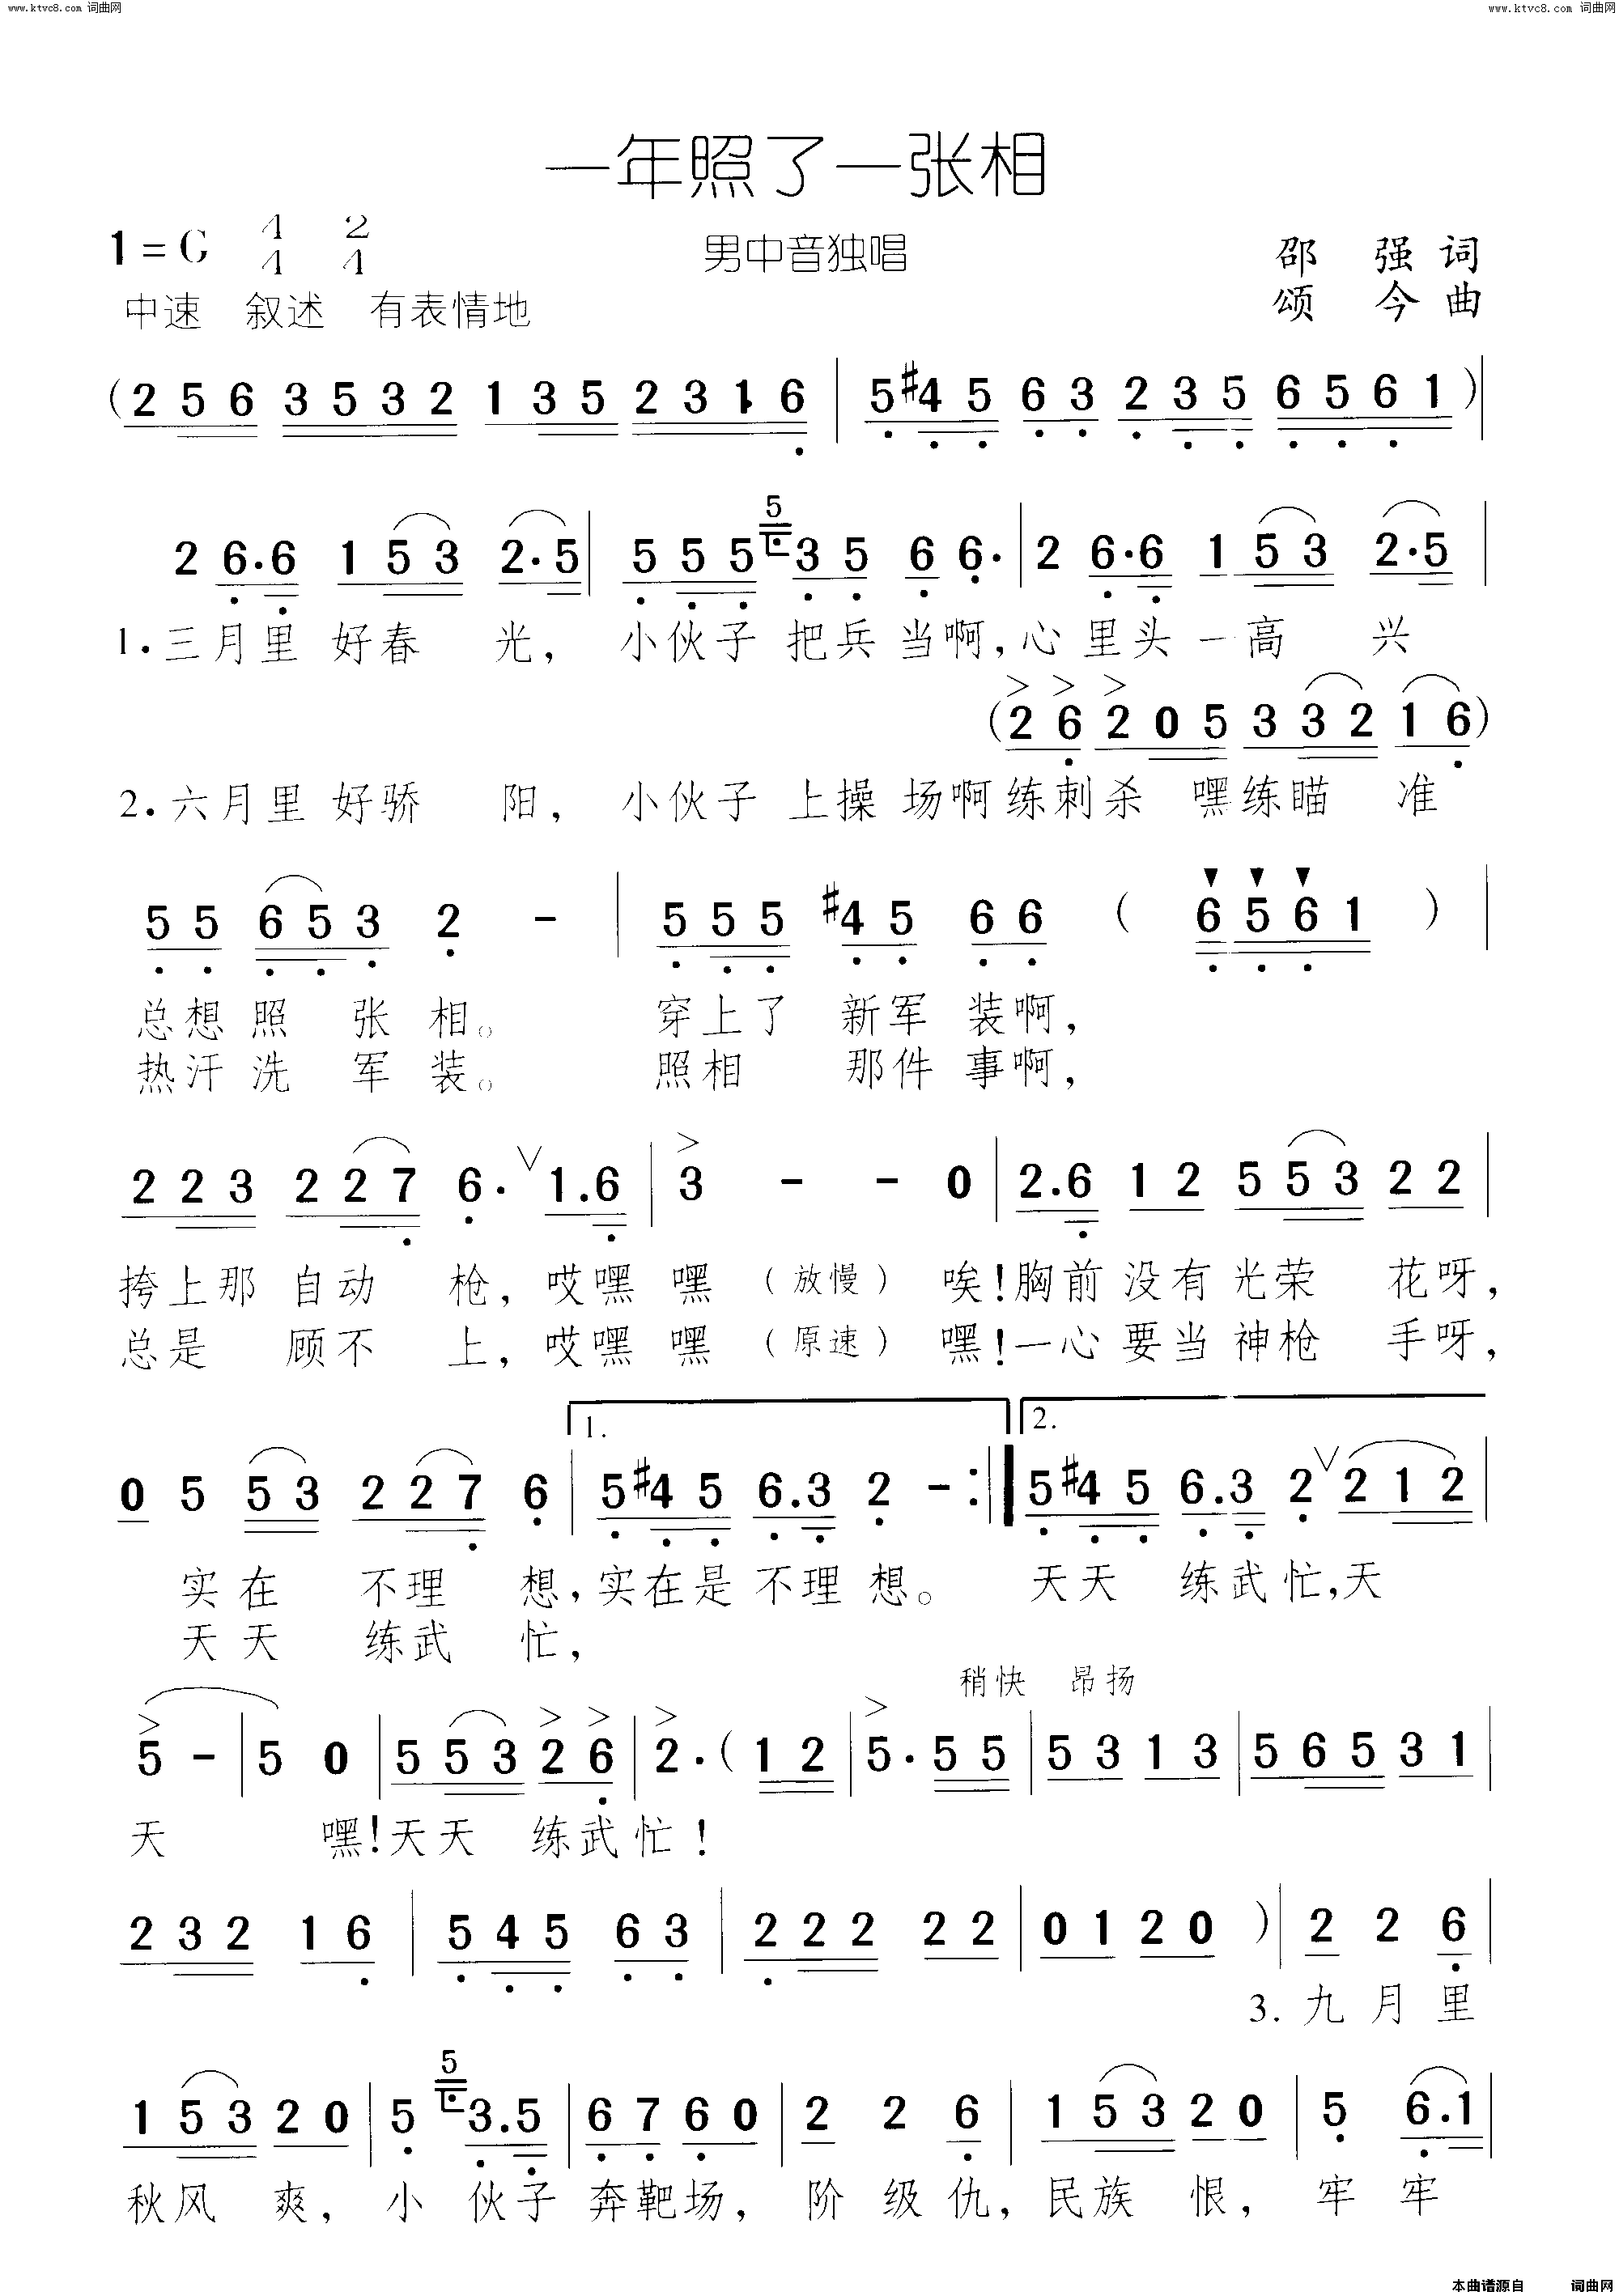 www.ktvc8.com 词曲网 www.ktvc8.com 词曲网
一年照了一张相
1=G 4/4 2/4 男中音独唱 邵 强 词
中速 叙述 有表情地 颂 今 曲
(2 5 6 3 5 3 2 1 3 5 2 3 1 6 | 5 #4 5 6 3 2 3 5 6 5 6 1)|
5
2 6.6 1 5 3 2.5 | 5 5 5 3 5 6 6. | 2 6.6 1 5 3 2.5 |
1.三月里 好春 光, 小伙子 把兵 当啊,心里头 一高 兴
(2 6 2 0 5 3 3 2 1 6)
2.六月里 好骄 阳, 小伙子 上操 场啊练刺杀 嘿练瞄 准
5 5 6 5 3 2 - | 5 5 5 #4 5 6 6 ( 6 5 6 1 ) |
总想照 张 相。 穿上了 新军 装啊,
热汗洗 军 装。 照相 那件 事啊,
2 2 3 2 2 7 6. 1.6 | 3 - - 0 | 2.6 1 2 5 5 3 2 2 |
挎上那 自动 枪, 哎嘿 嘿 (放慢) 唉!胸前 没有 光荣 花呀,
总是 顾不 上, 哎嘿 嘿 (原速) 嘿!一心 要当 神枪 手呀,
1. 2.
0 5 5 3 2 2 7 6 | 5 #4 5 6.3 2 - :| 5 #4 5 6.3 2 2 1 2 |
实在 不理 想,实在是 不理 想。 天天 练武忙,天
天天 练武 忙,
稍快 昂扬
5 - | 5 0 | 5 5 3 2 6 | 2.(1 2 | 5. 5 5 | 5 3 1 3 | 5 6 5 3 1 |
天 嘿!天天 练武忙!
2 3 2 1 6 | 5 4 5 6 3 | 2 2 2 2 2 | 0 1 2 0 )| 2 2 6 |
3.九月里
5
1 5 3 2 0 | 5 3.5 | 6 7 6 0 | 2 2 6 | 1 5 3 2 0 | 5 6.1 |
秋风 爽, 小 伙子 奔靶场, 阶 级仇, 民族 恨, 牢 牢
本曲谱源自 词曲网